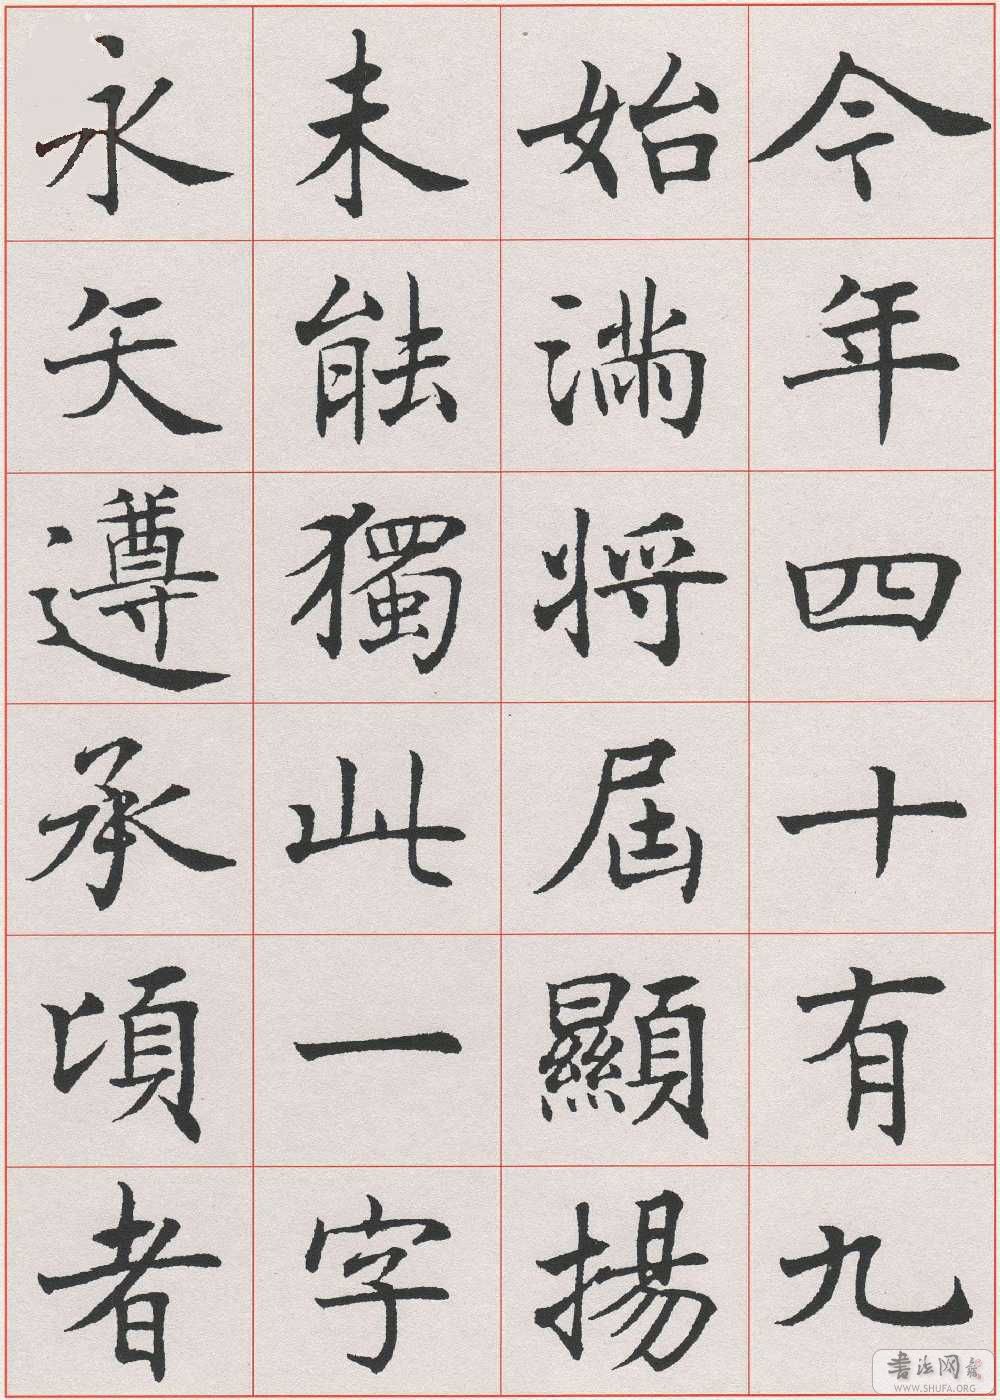 今年四十有九
始滿將屆顯揚
未能獨此一字
永矢遵承頃者
书法网
WWW.SHUFA.ORG